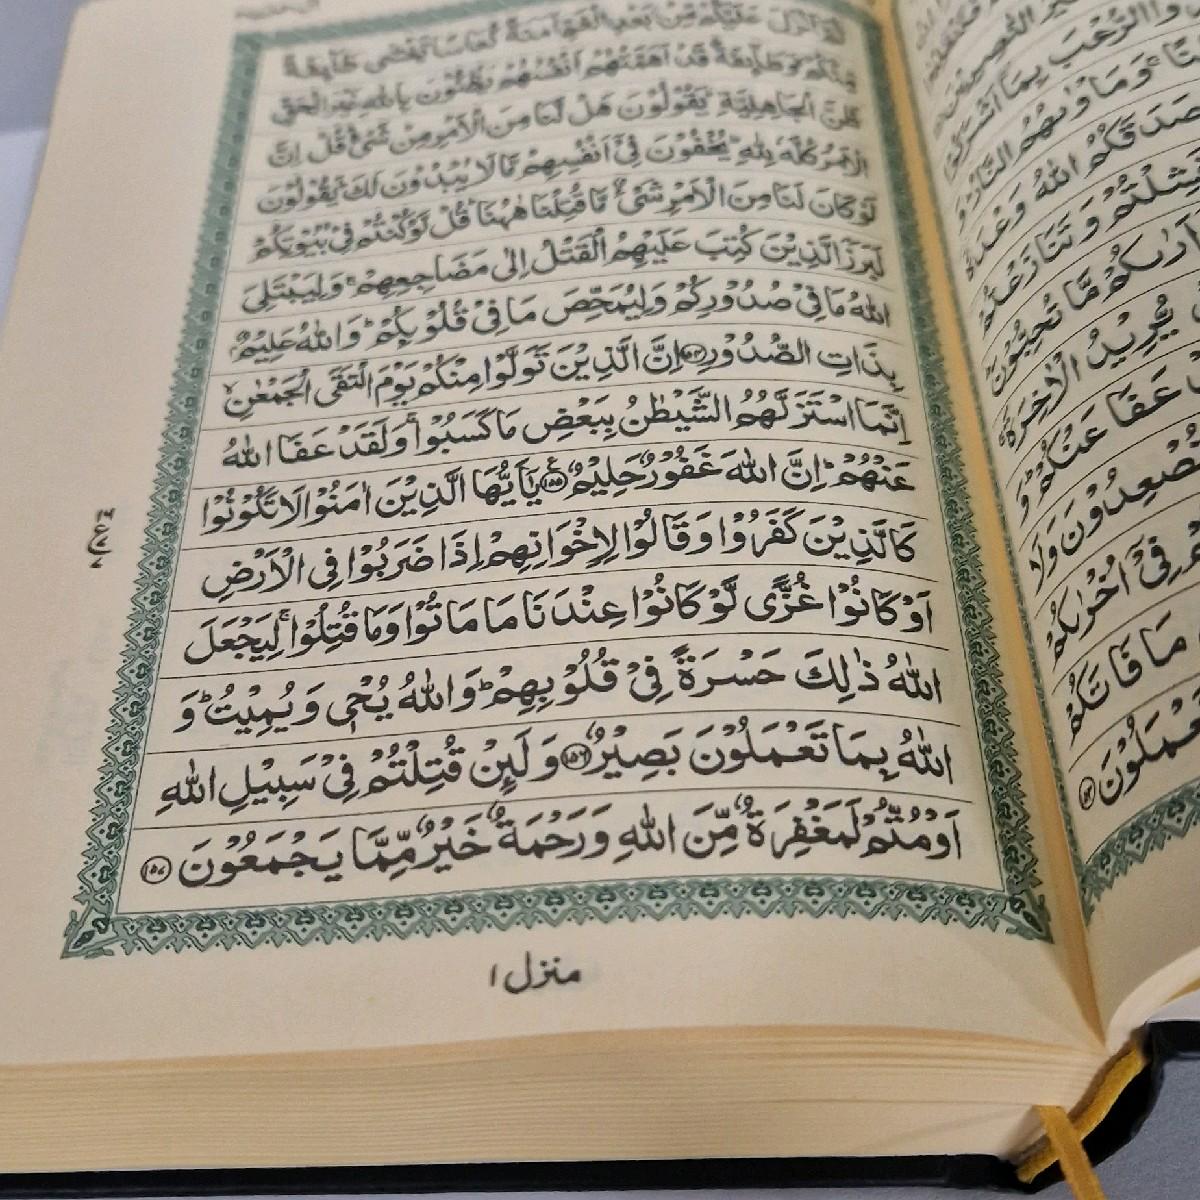 ثُمَّ اَنْزَلَ عَلَيْكُمْ مِّنْۢ بَعْدِ الْغَمِّ اَمَنَةً نُّعَاسًا يَّغْشٰى طَآئِفَةً
مِّنْكُمْ ۙ وَطَآئِفَةٌ قَدْ اَهَمَّتْهُمْ اَنْفُسُهُمْ يَظُنُّوْنَ بِاللّٰهِ غَيْرَ الْحَقِّ
ظَنَّ الْجَاهِلِيَّةِ ؕ يَقُوْلُوْنَ هَلْ لَّنَا مِنَ الْاَمْرِ مِنْ شَىْءٍ ؕ قُلْ اِنَّ
الْاَمْرَ كُلَّهٗ لِلّٰهِ ؕ يُخْفُوْنَ فِىْۤ اَنْفُسِهِمْ مَّا لَا يُبْدُوْنَ لَكَ ؕ يَقُوْلُوْنَ
لَوْ كَانَ لَنَا مِنَ الْاَمْرِ شَىْءٌ مَّا قُتِلْنَا هٰهُنَا ؕ قُلْ لَّوْ كُنْتُمْ فِىْ بُيُوْتِكُمْ
لَبَرَزَ الَّذِيْنَ كُتِبَ عَلَيْهِمُ الْقَتْلُ اِلٰى مَضَاجِعِهِمْ ۚ وَلِيَبْتَلِىَ
اللّٰهُ مَا فِىْ صُدُوْرِكُمْ وَلِيُمَحِّصَ مَا فِىْ قُلُوْبِكُمْ ؕ وَاللّٰهُ عَلِيْمٌۢ
بِذَاتِ الصُّدُوْرِ ﴿۱۵۴﴾ اِنَّ الَّذِيْنَ تَوَلَّوْا مِنْكُمْ يَوْمَ الْتَقَى الْجَمْعٰنِ ۙ
اِنَّمَا اسْتَزَلَّهُمُ الشَّيْطٰنُ بِبَعْضِ مَا كَسَبُوْا ۚ وَلَقَدْ عَفَا اللّٰهُ
عَنْهُمْ ؕ اِنَّ اللّٰهَ غَفُوْرٌ حَلِيْمٌ ﴿۱۵۵﴾ يٰۤاَيُّهَا الَّذِيْنَ اٰمَنُوْا لَا تَكُوْنُوْا
كَالَّذِيْنَ كَفَرُوْا وَقَالُوْا لِاِخْوَانِهِمْ اِذَا ضَرَبُوْا فِى الْاَرْضِ
اَوْ كَانُوْا غُزًّى لَّوْ كَانُوْا عِنْدَنَا مَا مَاتُوْا وَمَا قُتِلُوْا ۚ لِيَجْعَلَ
اللّٰهُ ذٰلِكَ حَسْرَةً فِىْ قُلُوْبِهِمْ ؕ وَاللّٰهُ يُحْىٖ وَيُمِيْتُ ؕ وَ
اللّٰهُ بِمَا تَعْمَلُوْنَ بَصِيْرٌ ﴿۱۵۶﴾ وَلَئِنْ قُتِلْتُمْ فِىْ سَبِيْلِ اللّٰهِ
اَوْ مُتُّمْ لَمَغْفِرَةٌ مِّنَ اللّٰهِ وَرَحْمَةٌ خَيْرٌ مِّمَّا يَجْمَعُوْنَ ﴿۱۵۷﴾
منزل ۱
صَدَقَكُمُ اللّٰهُ وَعْدَهٗۤ
اَرٰىكُمْ مَّا تُحِبُّوْنَ ؕ
يُّرِيْدُ الْاٰخِرَةَ ۚ
عَفَا عَنْكُمْ ؕ وَ
تُصْعِدُوْنَ وَلَا
فِىْۤ اُخْرٰىكُمْ
مَا فَاتَكُمْ
تَعْمَلُوْنَ ﴿۱۵۳﴾